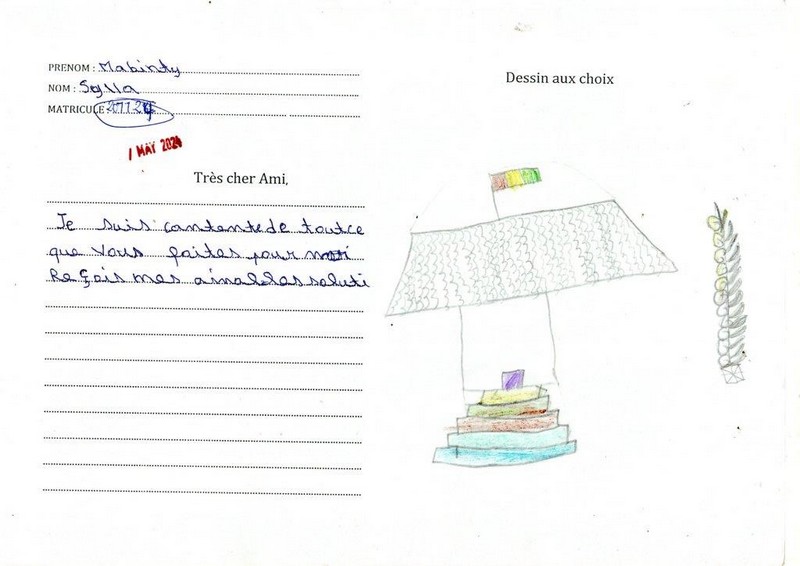 PRENOM : Mabinty
NOM : Sylla
MATRICULE :
1 MAÏ 2024
Très cher Ami,
Je suis contente de toutce
que vous faites pour moi
Reçois mes aimables saluti
Dessin aux choix